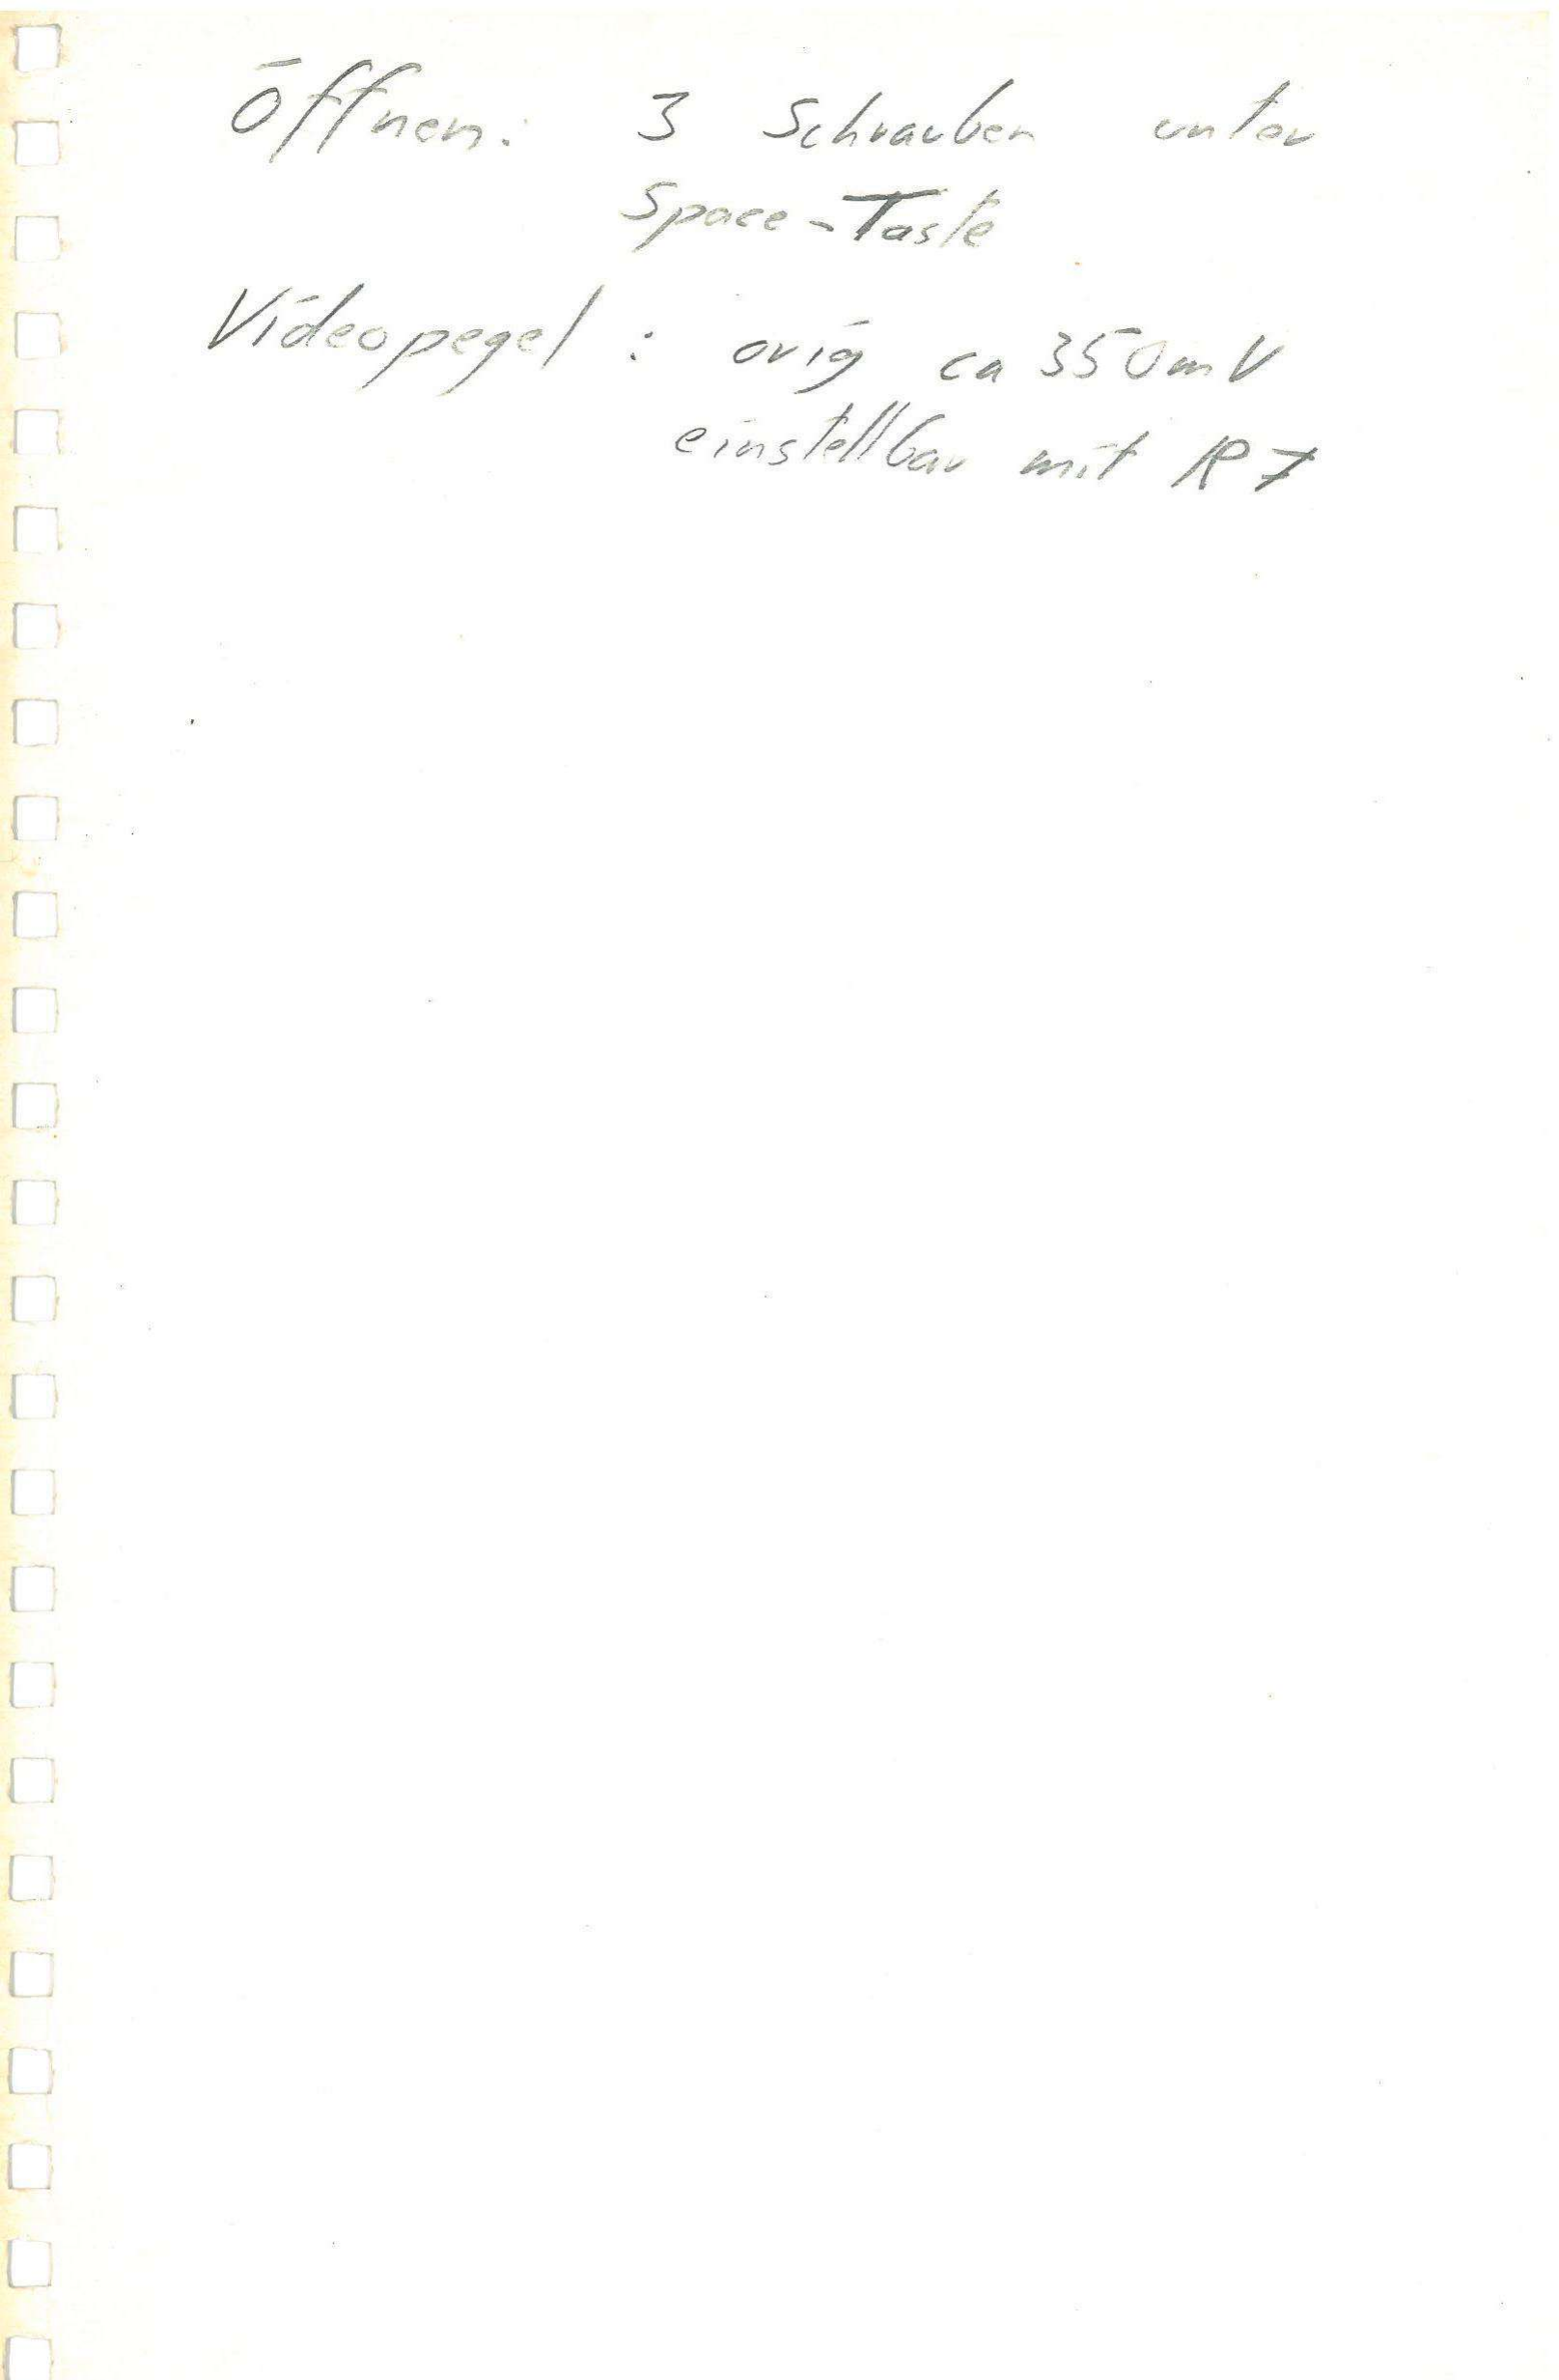 Öffnen: 3 Schrauben unter
Space-Taste
Videopegel : orig ca 350mV
einstellbar mit R7